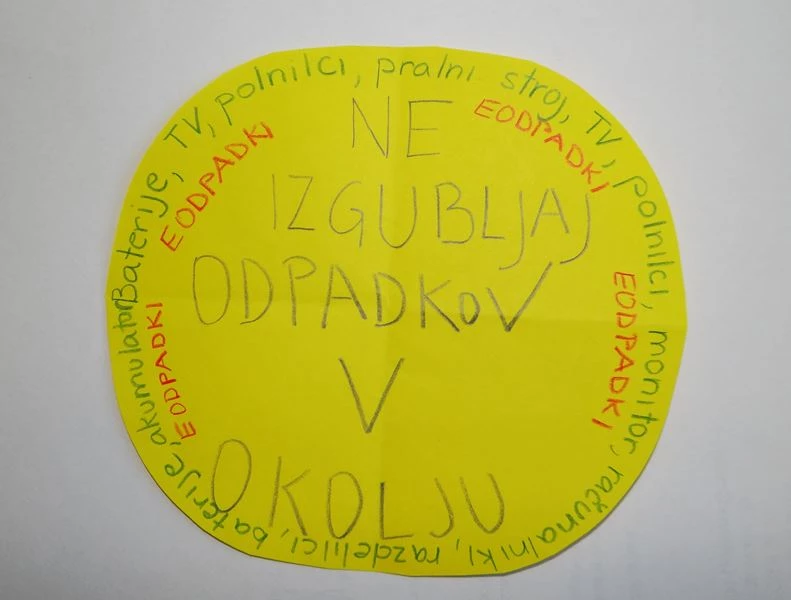 Baterije, TV, polnilci, pralni stroj, TV, polnilci, monitor, računalniki, razdelilci, baterije, akumulator
EODPADKI
EODPADKI
EODPADKI
EODPADKI
NE
IZGUBLJAJ
ODPADKOV
V
OKOLJU